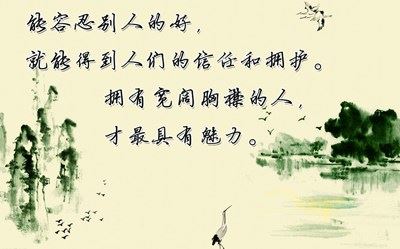 能容忍别人的好，
就能得到人们的信任和拥护。
拥有宽阔胸襟的人，
才最具有魅力。